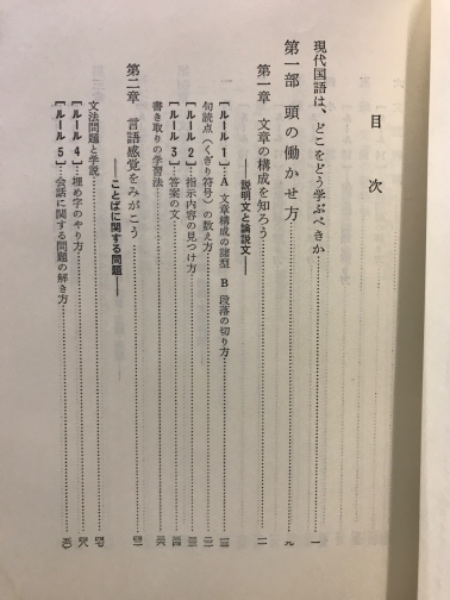 目次
現代国語は、どこをどう学ぶべきか……一
第一部 頭の働かせ方……九
第一章 文章の構成を知ろう……一一
――説明文と論説文――
[ルール1] A 文章構成の諸型 B 段落の切り方
句読点(くぎり符号)の数え方
[ルール2] 指示内容の見つけ方
[ルール3] 答案の文
書き取りの学習法
第二章 言語感覚をみがこう
――ことばに関する問題――
文法問題と学説
[ルール4] 埋め字のやり方
[ルール5] 会話に関する問題の解き方